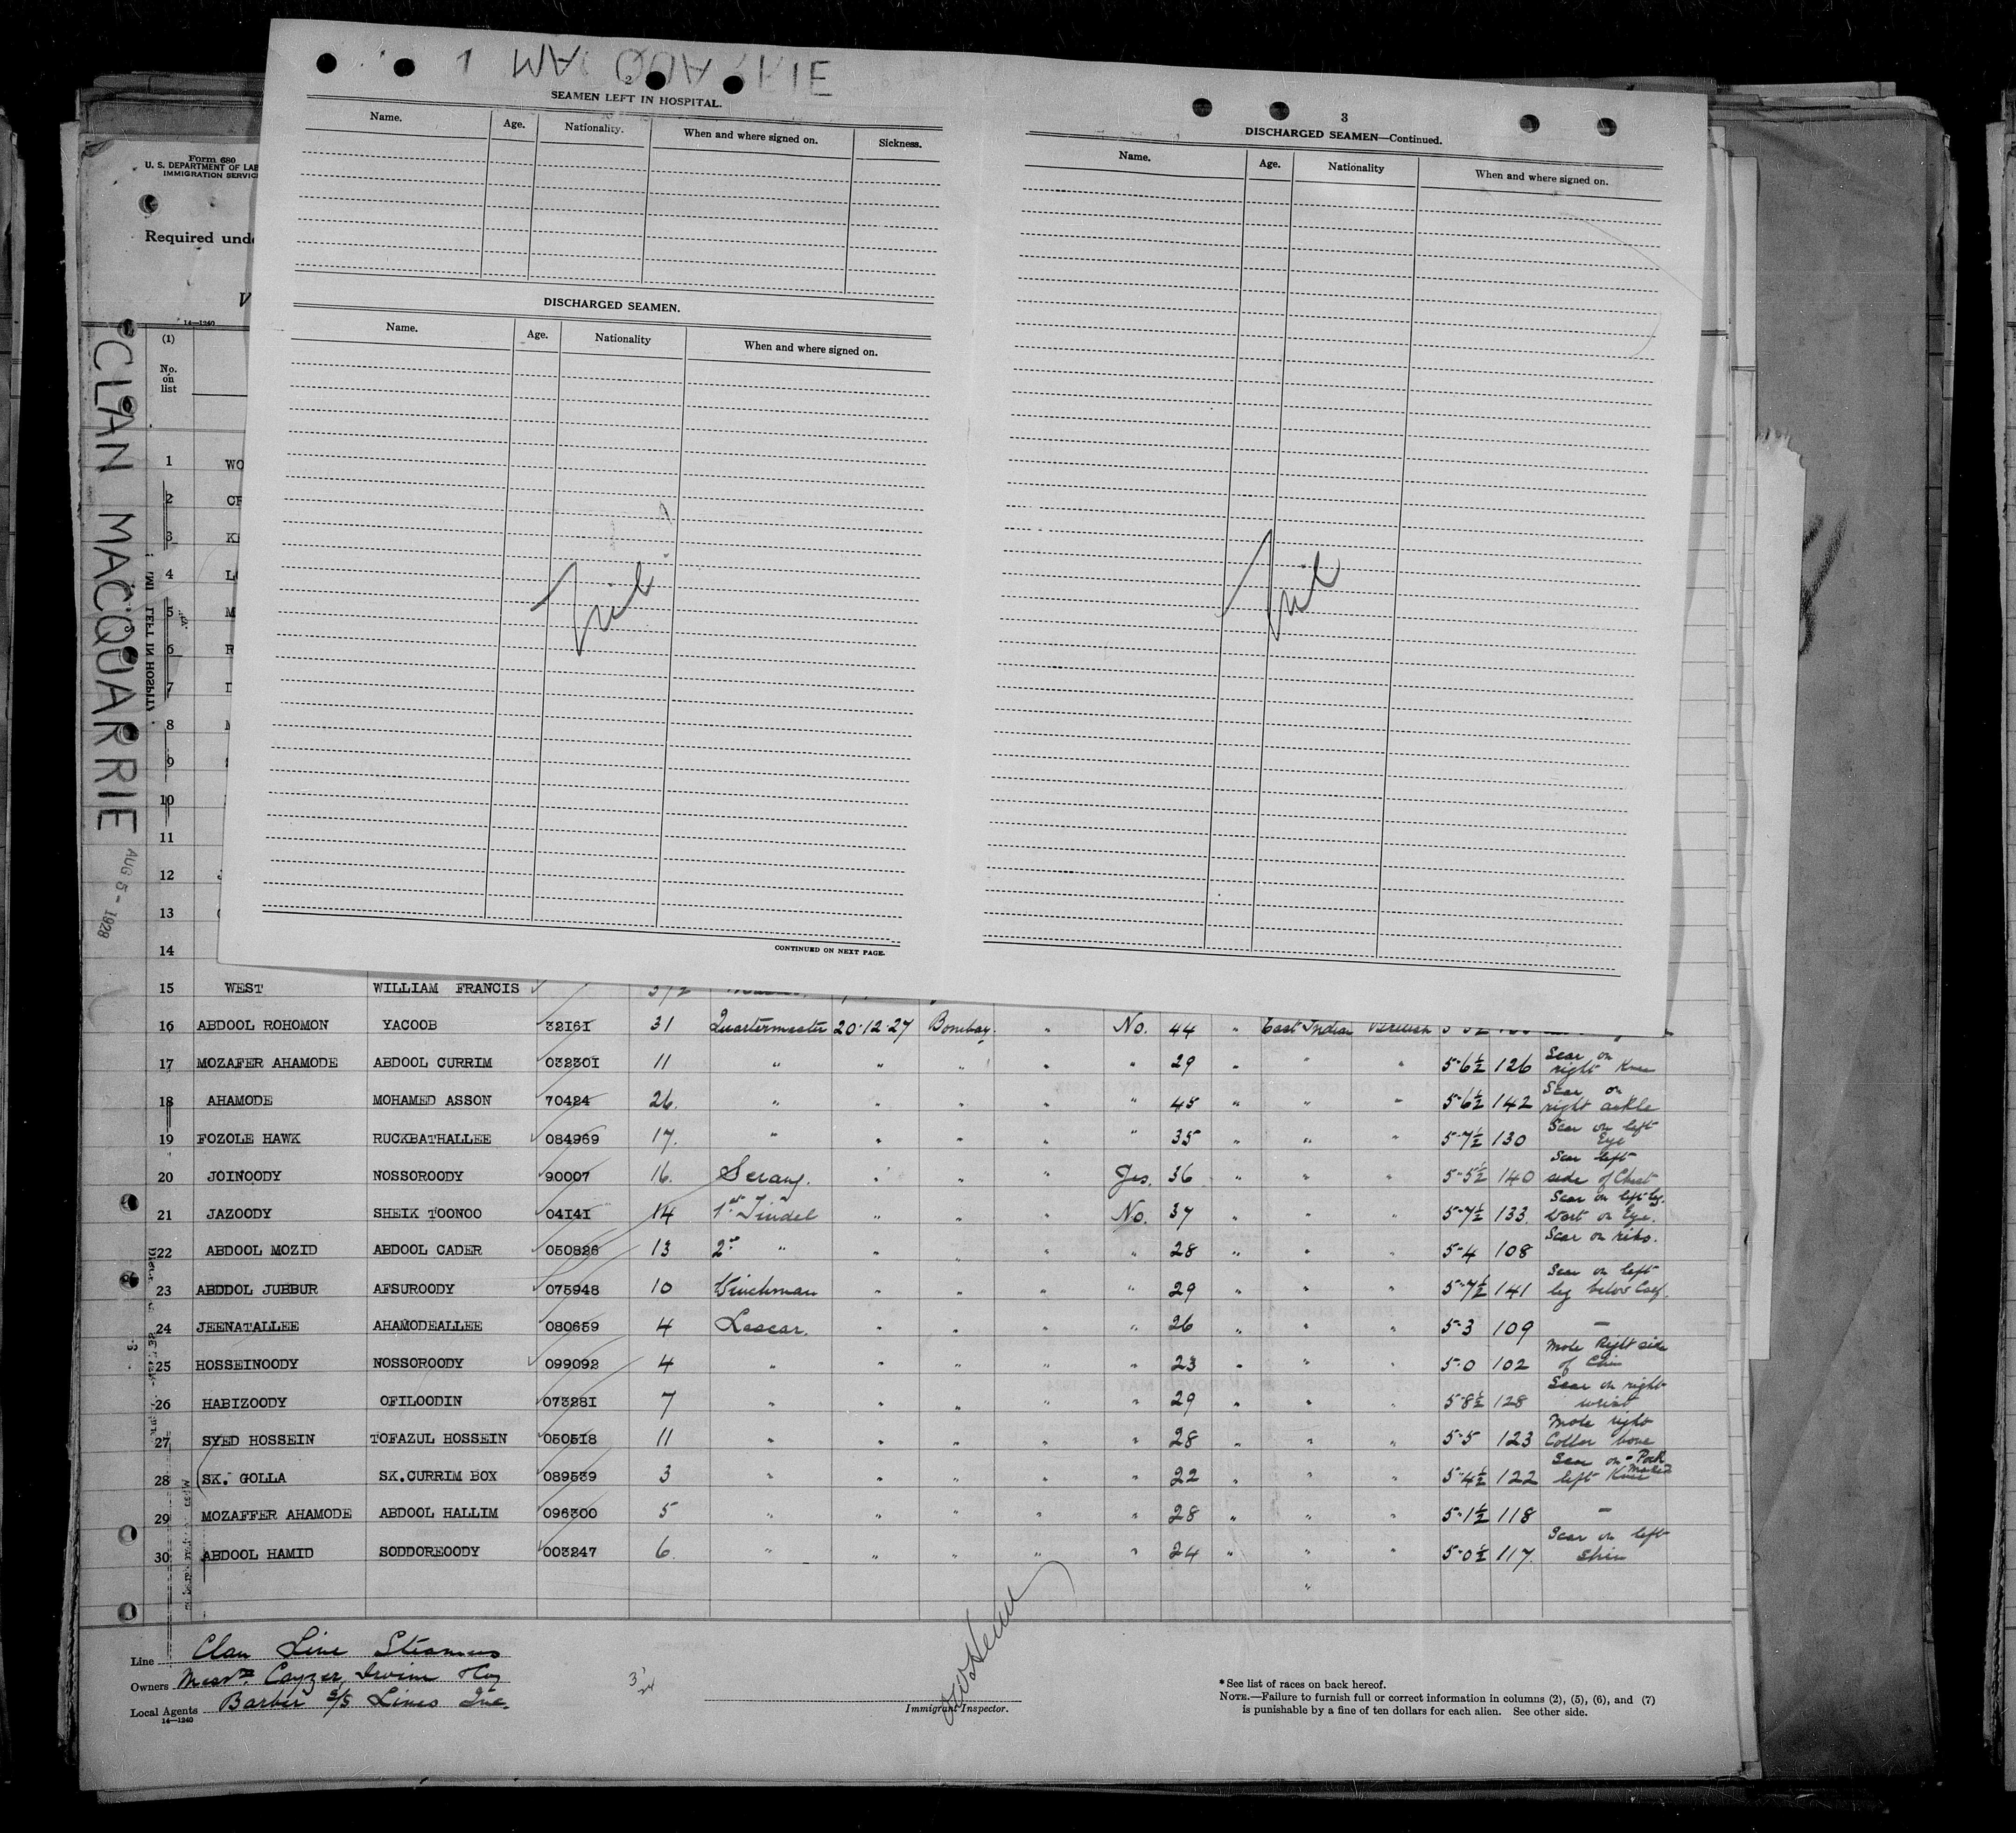 1 MACQUARRIE
2
SEAMEN LEFT IN HOSPITAL.
Name. Age. Nationality. When and where signed on. Sickness.
DISCHARGED SEAMEN.
Name. Age. Nationality When and where signed on.
Nil
CONTINUED ON NEXT PAGE.
3
DISCHARGED SEAMEN—Continued.
Name. Age. Nationality When and where signed on.
Nil
Form 680
U. S. DEPARTMENT OF LAB
IMMIGRATION SERVIC
Required unde
V
14—1240
(1)
No.
on
list
CLAN MACQUARRIE
AUG 5 - 1928
1 WO
2 CR
3 K
4 L
5 M
6 R
7 D
8 M
9
10
11
12 J
13
14
15 WEST WILLIAM FRANCIS
16 ABDOOL ROHOMON YACOOB 32161 31 Quartermaster 20·12·27 Bombay. " No. 44 " East Indian British
17 MOZAFER AHAMODE ABDOOL CURRIM 032301 11 " " " " " 29 " " " 5-6½ 126 Scar on right Knee
18 AHAMODE MOHAMED ASSON 70424 26. " " " " " 45 " " " 5-6½ 142 Scar on right ankle
19 FOZOLE HAWK RUCKBATHALLEE 084969 17. " " " " " 35 " " " 5-7½ 130 Scar on left Eye
20 JOINOODY NOSSOROODY 90007 16. Serang. " " " Yes. 36 " " " 5-5½ 140 Scar left side of Chest
21 JAZOODY SHEIK TOONOO 04141 14 1st Tindel " " " No. 37 " " " 5-7½ 133. Scar on left leg. Wart on Eye.
22 ABDOOL MOZID ABDOOL CADER 050826 13 2nd " " " " " 28 " " " 5-4 108 Scar on ribs.
23 ABDDOL JUBBUR AFSUROODY 075948 10 Winchman " " " " 29 " " " 5-7½ 141 Scar on left leg below Calf.
24 JEENATALLEE AHAMODEALLEE 080659 4 Lascar. " " " " 26 " " " 5-3 109 —
25 HOSSEINOODY NOSSOROODY 099092 4 " " " " " 23 " " " 5-0 102 Mole Right side of Chin
26 HABIZOODY OFILOODIN 073281 7 " " " " " 29 " " " 5-8½ 128 Scar on right wrist
27 SYED HOSSEIN TOFAZUL HOSSEIN 050518 11 " " " " " 28 " " " 5-5 123 Mole right Collar bone
28 SK. GOLLA SK.CURRIM BOX 089539 3 " " " " " 22 " " " 5-4½ 122 Scar on left Knee - Pock Marked
29 MOZAFFER AHAMODE ABDOOL HALLIM 096300 5 " " " " " 28 " " " 5-1½ 118 —
30 ABDOOL HAMID SODDOREOODY 003247 6. " " " " " 24 " " " 5-0½ 117. Scar on left shin
Line Clan Line Steamers
Owners Messrs. Cayzer, Irvine &Coy
Local Agents Barber S/S Lines Inc.
14—1240
Immigrant Inspector.
*See list of races on back hereof.
NOTE.—Failure to furnish full or correct information in columns (2), (5), (6), and (7)
is punishable by a fine of ten dollars for each alien. See other side.